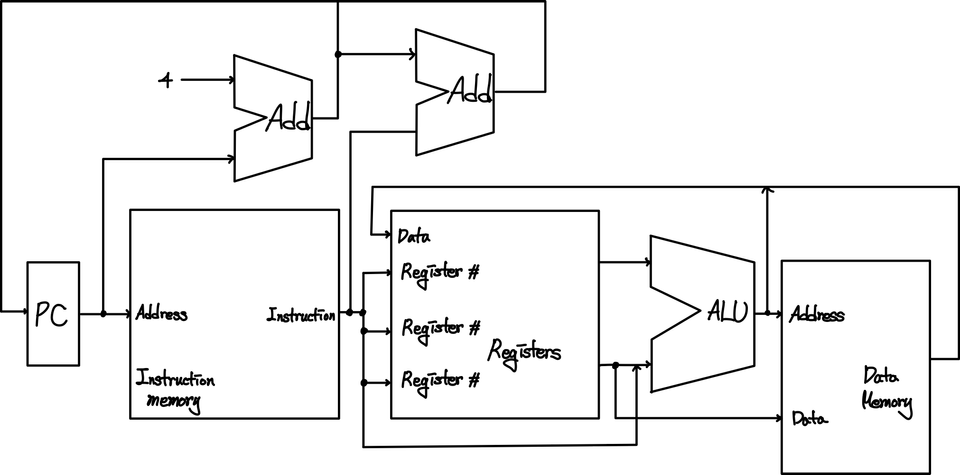 4
Add
Add
PC
Address
Instruction
Instruction
memory
Data
Register #
Register #
Register #
Registers
ALU
Address
Data
Memory
Data